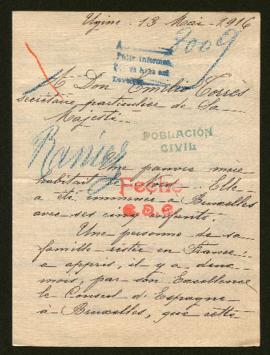 Ugine, 13 Mai 1916
9009
Para informar
Mr Don Emilio Torres
Secrétaire particulier de Sa
Majesté
POBLACIÓN
CIVIL
Ranier
Une pauvre mère
habitait Elle
Fecho
a été emmenée à Bruxelles
avec ses cinq enfants.
Une personne de sa
famille restée en France
a appris, il y a deux
mois, par son Excellence
le Consul d'Espagne
à Bruxelles, que cette